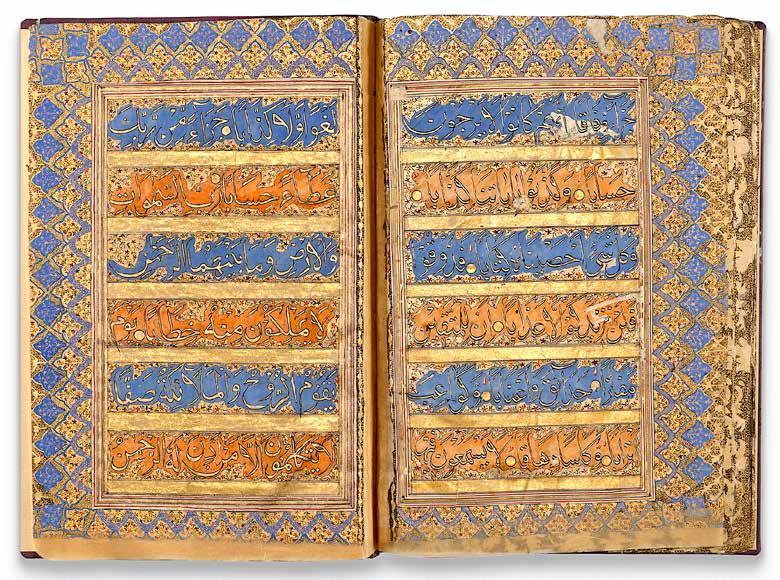 جزاء وفاقا كانوا لا يرجون
حسابا وكذبوا باياتنا كذابا
وكل شيء احصيناه كتابا فذوقوا
فلن نزيدكم الا عذابا ان للمتقين
مفازا حدائق واعنابا وكواعب
اترابا وكاسا دهاقا لا يسمعون فيها
لغوا ولا كذابا جزاء من ربك
عطاء حسابا رب السموات
والارض وما بينهما الرحمن
لا يملكون منه خطابا يوم
يقوم الروح والملائكة صفا
لا يتكلمون الا من اذن له الرحمن